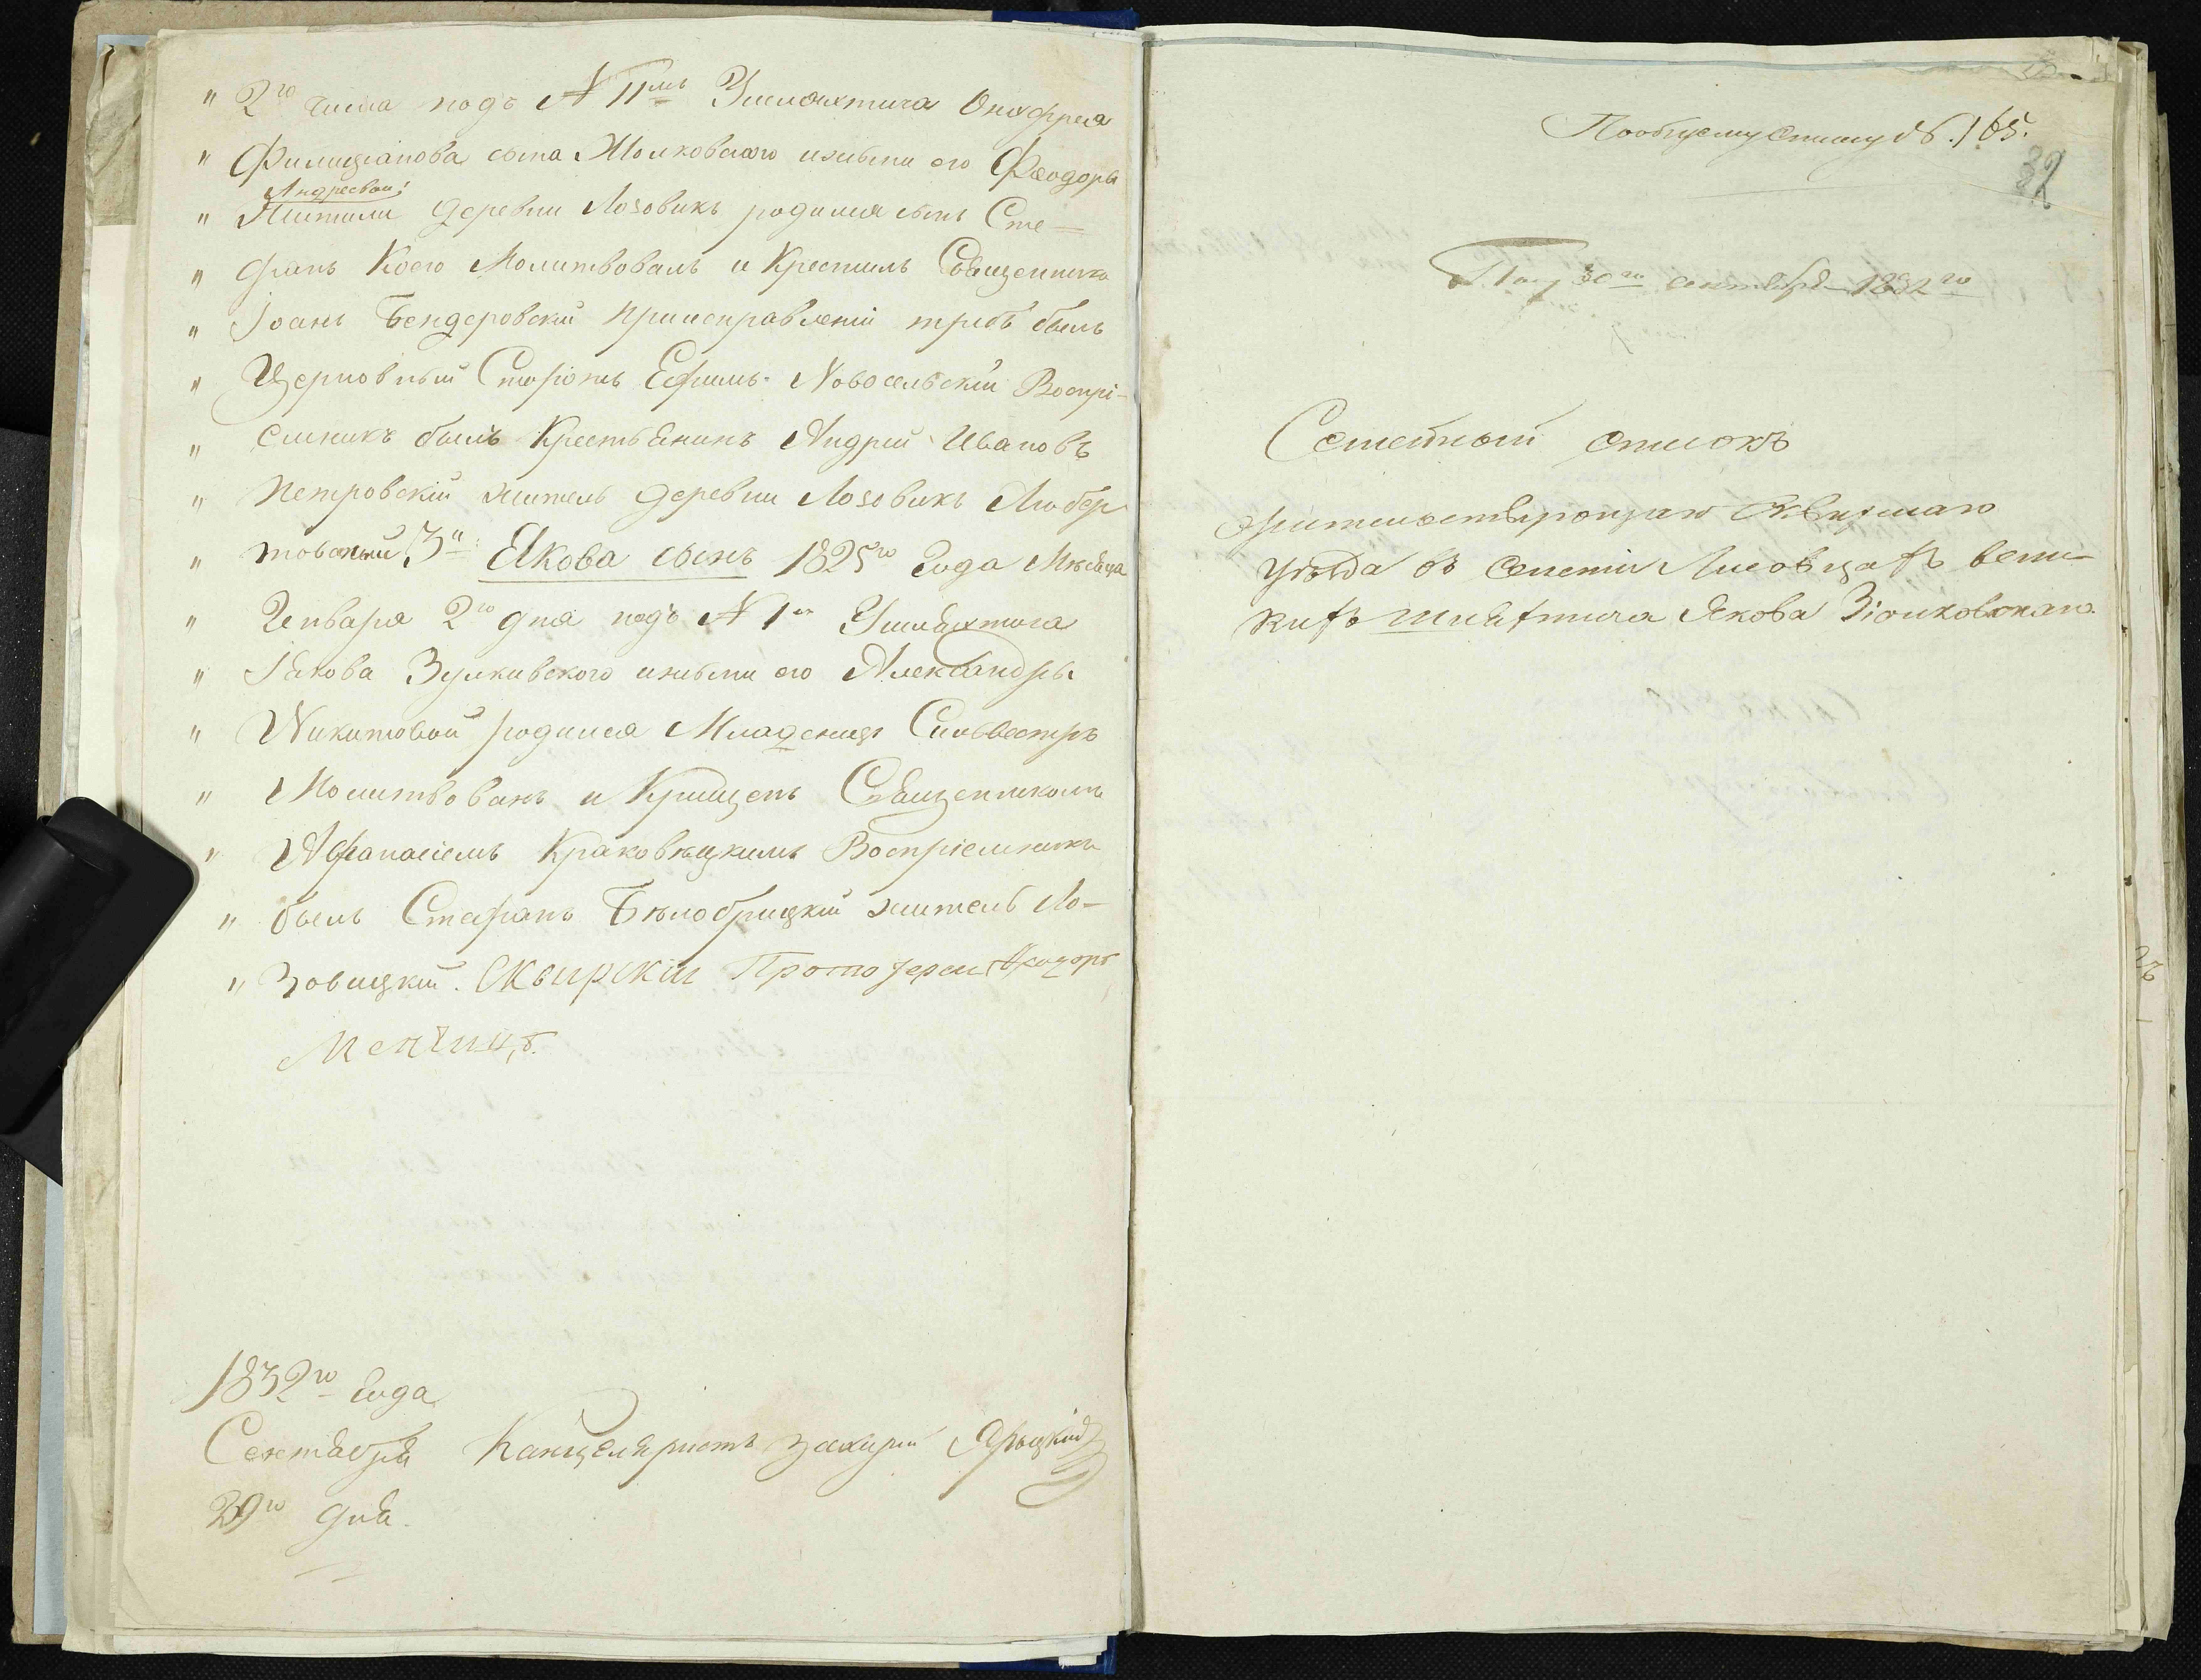 " 2го числа подъ № 11мъ Ушляхтича Онуфрея
" Филиціанова сына Жолковского ижены его Феодоры
Андреевой
" Жители деревни Лозовикъ родился сынъ Сте-
" фанъ Коего Молитвовалъ и Крестилъ Священникъ
" Іоанъ Бендеровскій Приисправленіи требъ былъ
" Церковный Сторожъ Ефимъ Новосельскій Воспрі-
" емникъ былъ Крестьянинъ Андрей Ивановъ
" Петровскій житель деревни Лозовикъ
" 3й Якова сынъ 1825го Года Мѣсяца
" Генваря 2го дня подъ № 1мъ Ушляхтича
" Іякова Зулкивского ижены его Александры
" Никитовой родился Младенецъ Сильвестръ
" Молитвованъ и Крищенъ Священникомъ
" Афанасіемъ Краковецкимъ Воспріемникъ
" былъ Стефанъ Бѣлобрицкій житель Ло-
" зовицкій. Сквирскій Протоіерей Феодоръ
Менчицъ.
1832го Года
Сентября Канцеляристъ Захарій Ярыцкій
29го дня.
Пообщему списку № 165.
32
30го сентября 1832го
Семейный списокъ
жительствующаго Сквирскаго
Уѣзда въ селеніи Лисовцахъ вели-
кихъ шляхтича Якова Зіолковскаго